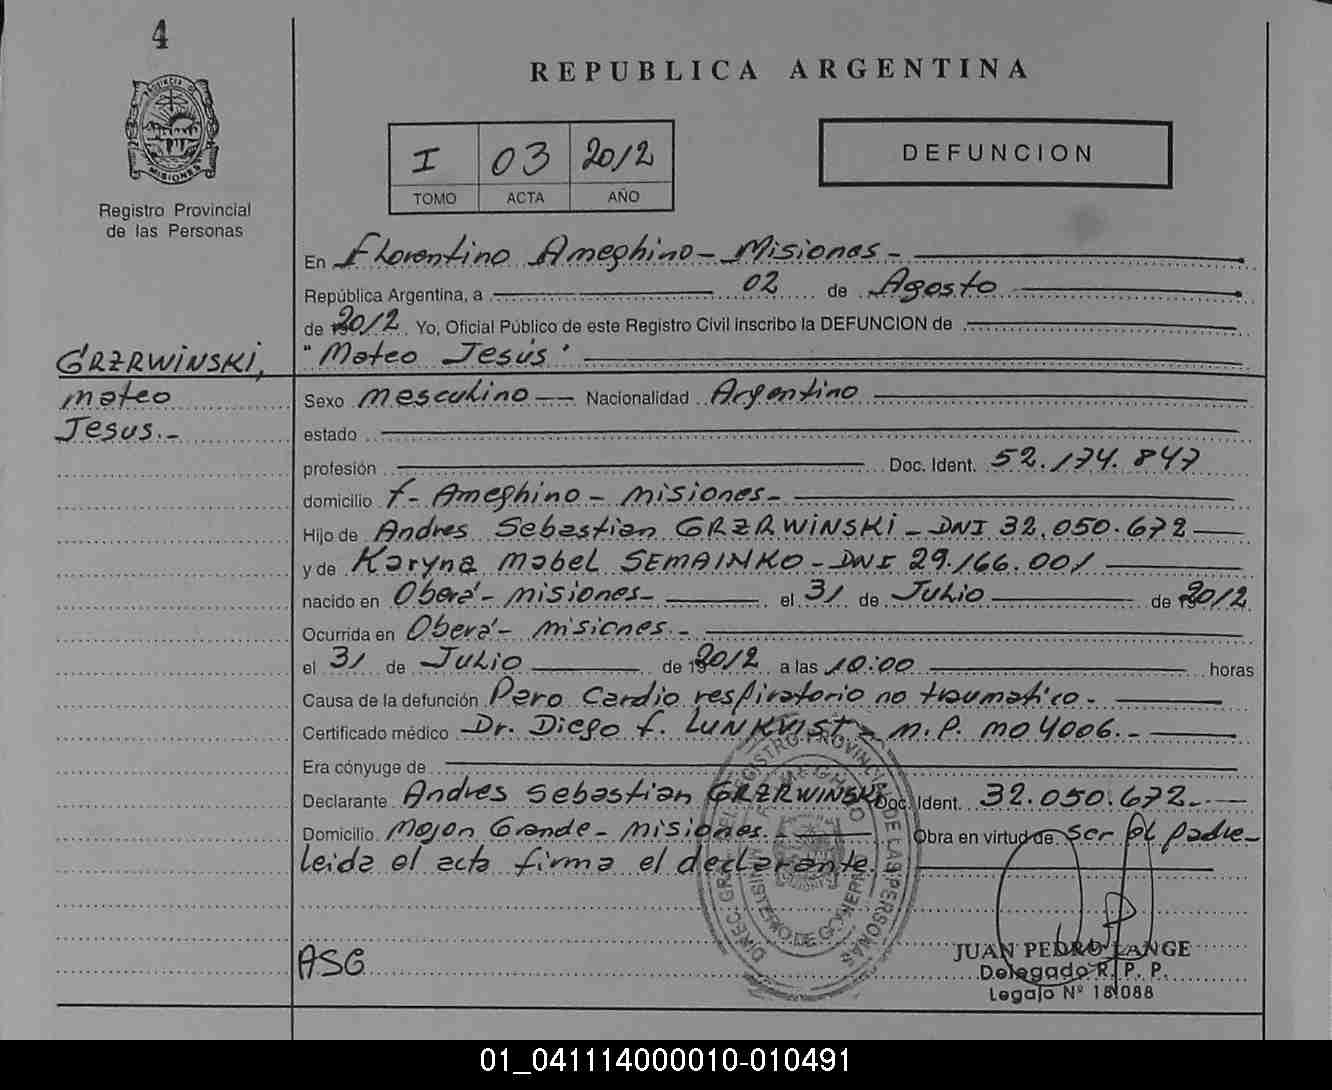 4
PROVINCIA DE
MISIONES
Registro Provincial
de las Personas
REPUBLICA ARGENTINA
I 03 2012
TOMO ACTA AÑO
DEFUNCION
En Florentino Ameghino - Misiones -
República Argentina, a 02 de Agosto
de 2012 Yo, Oficial Público de este Registro Civil inscribo la DEFUNCION de
"Mateo Jesús"
GRZRWINSKI,
mateo
Jesus.-
Sexo masculino Nacionalidad Argentino
estado
profesión Doc. Ident. 52.174.847
domicilio F- Ameghino - misiones -
Hijo de Andres Sebastian GRZRWINSKI - DNI 32.050.672
y de Karyna Mabel SEMAINKO - DNI 29.166.001
nacido en Oberá - misiones - el 31 de Julio de 2012
Ocurrida en Oberá - misiones. -
el 31 de Julio de 2012 a las 10:00 horas
Causa de la defunción Paro Cardio respiratorio no traumatico -
Certificado médico Dr. Diego F. LUNKVIST - M.P. MO 4006. -
Era cónyuge de
Declarante Andres Sebastian GRZRWINSKI Doc. Ident. 32.050.672. -
Domicilio Mojon Grande - misiones. Obra en virtud de ser el padre -
leida el acta firma el declarante
DIREC. GRAL. DEL REGISTRO PROVINCIAL DE LAS PERSONAS
F. AMEGHINO
MINISTERIO DE GOBIERNO
MISIONES
ASG
JUAN PEDRO LANGE
Delegado R. P. P.
Legajo Nº 18.088
01_041114000010-010491